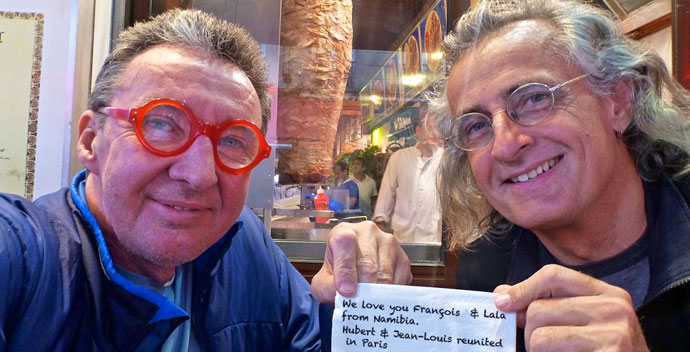 We love you François & Lala
from Namibia.
Hubert & Jean-Louis reunited
in Paris